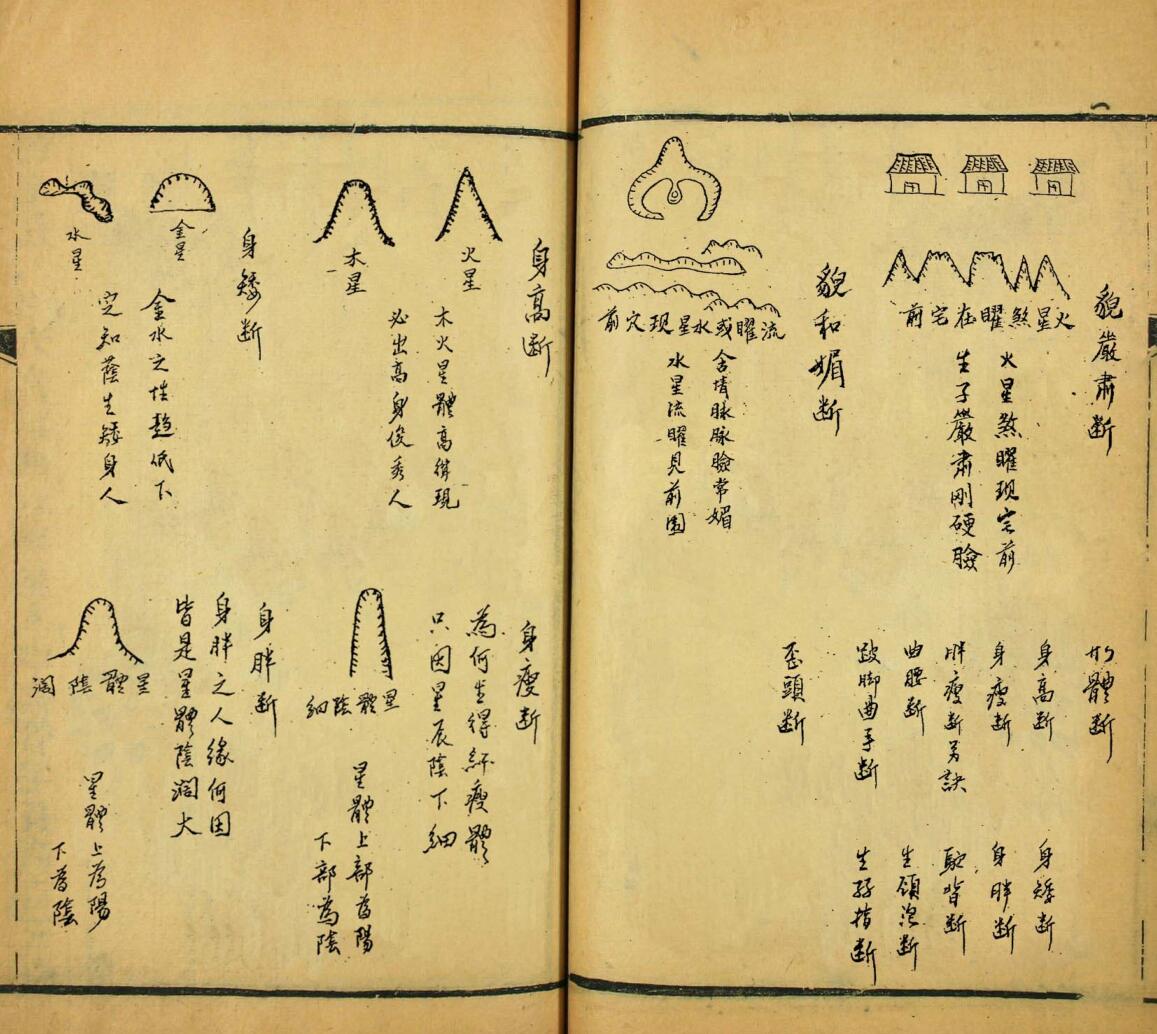 貌嚴肅断
火星煞曜在宅前
火星煞曜现宅前
生子嚴肃刚硬臉
貌和媚断
流曜或水星现穴前
含情脉脉臉常媚
水星流曜見前園
形體断
身高断
身矮断
身瘦断
身胖断
胖瘦断另訣
駝背断
曲腰断
生頸泡断
跛脚曲手断
生孖指断
歪頭断
身高断
火星
木火星體高聳現
必出高身俊秀人
木星
身矮断
金星
金水之性趋低下
定知蔭生矮身人
水星
身瘦断
為何生得纤瘦體
只因星辰陰下細
星體陰细
星體上部為陽
下部為陰
身胖断
身胖之人缘何因
皆是星體陰濶大
星體陰濶
星體上為陽
下為陰